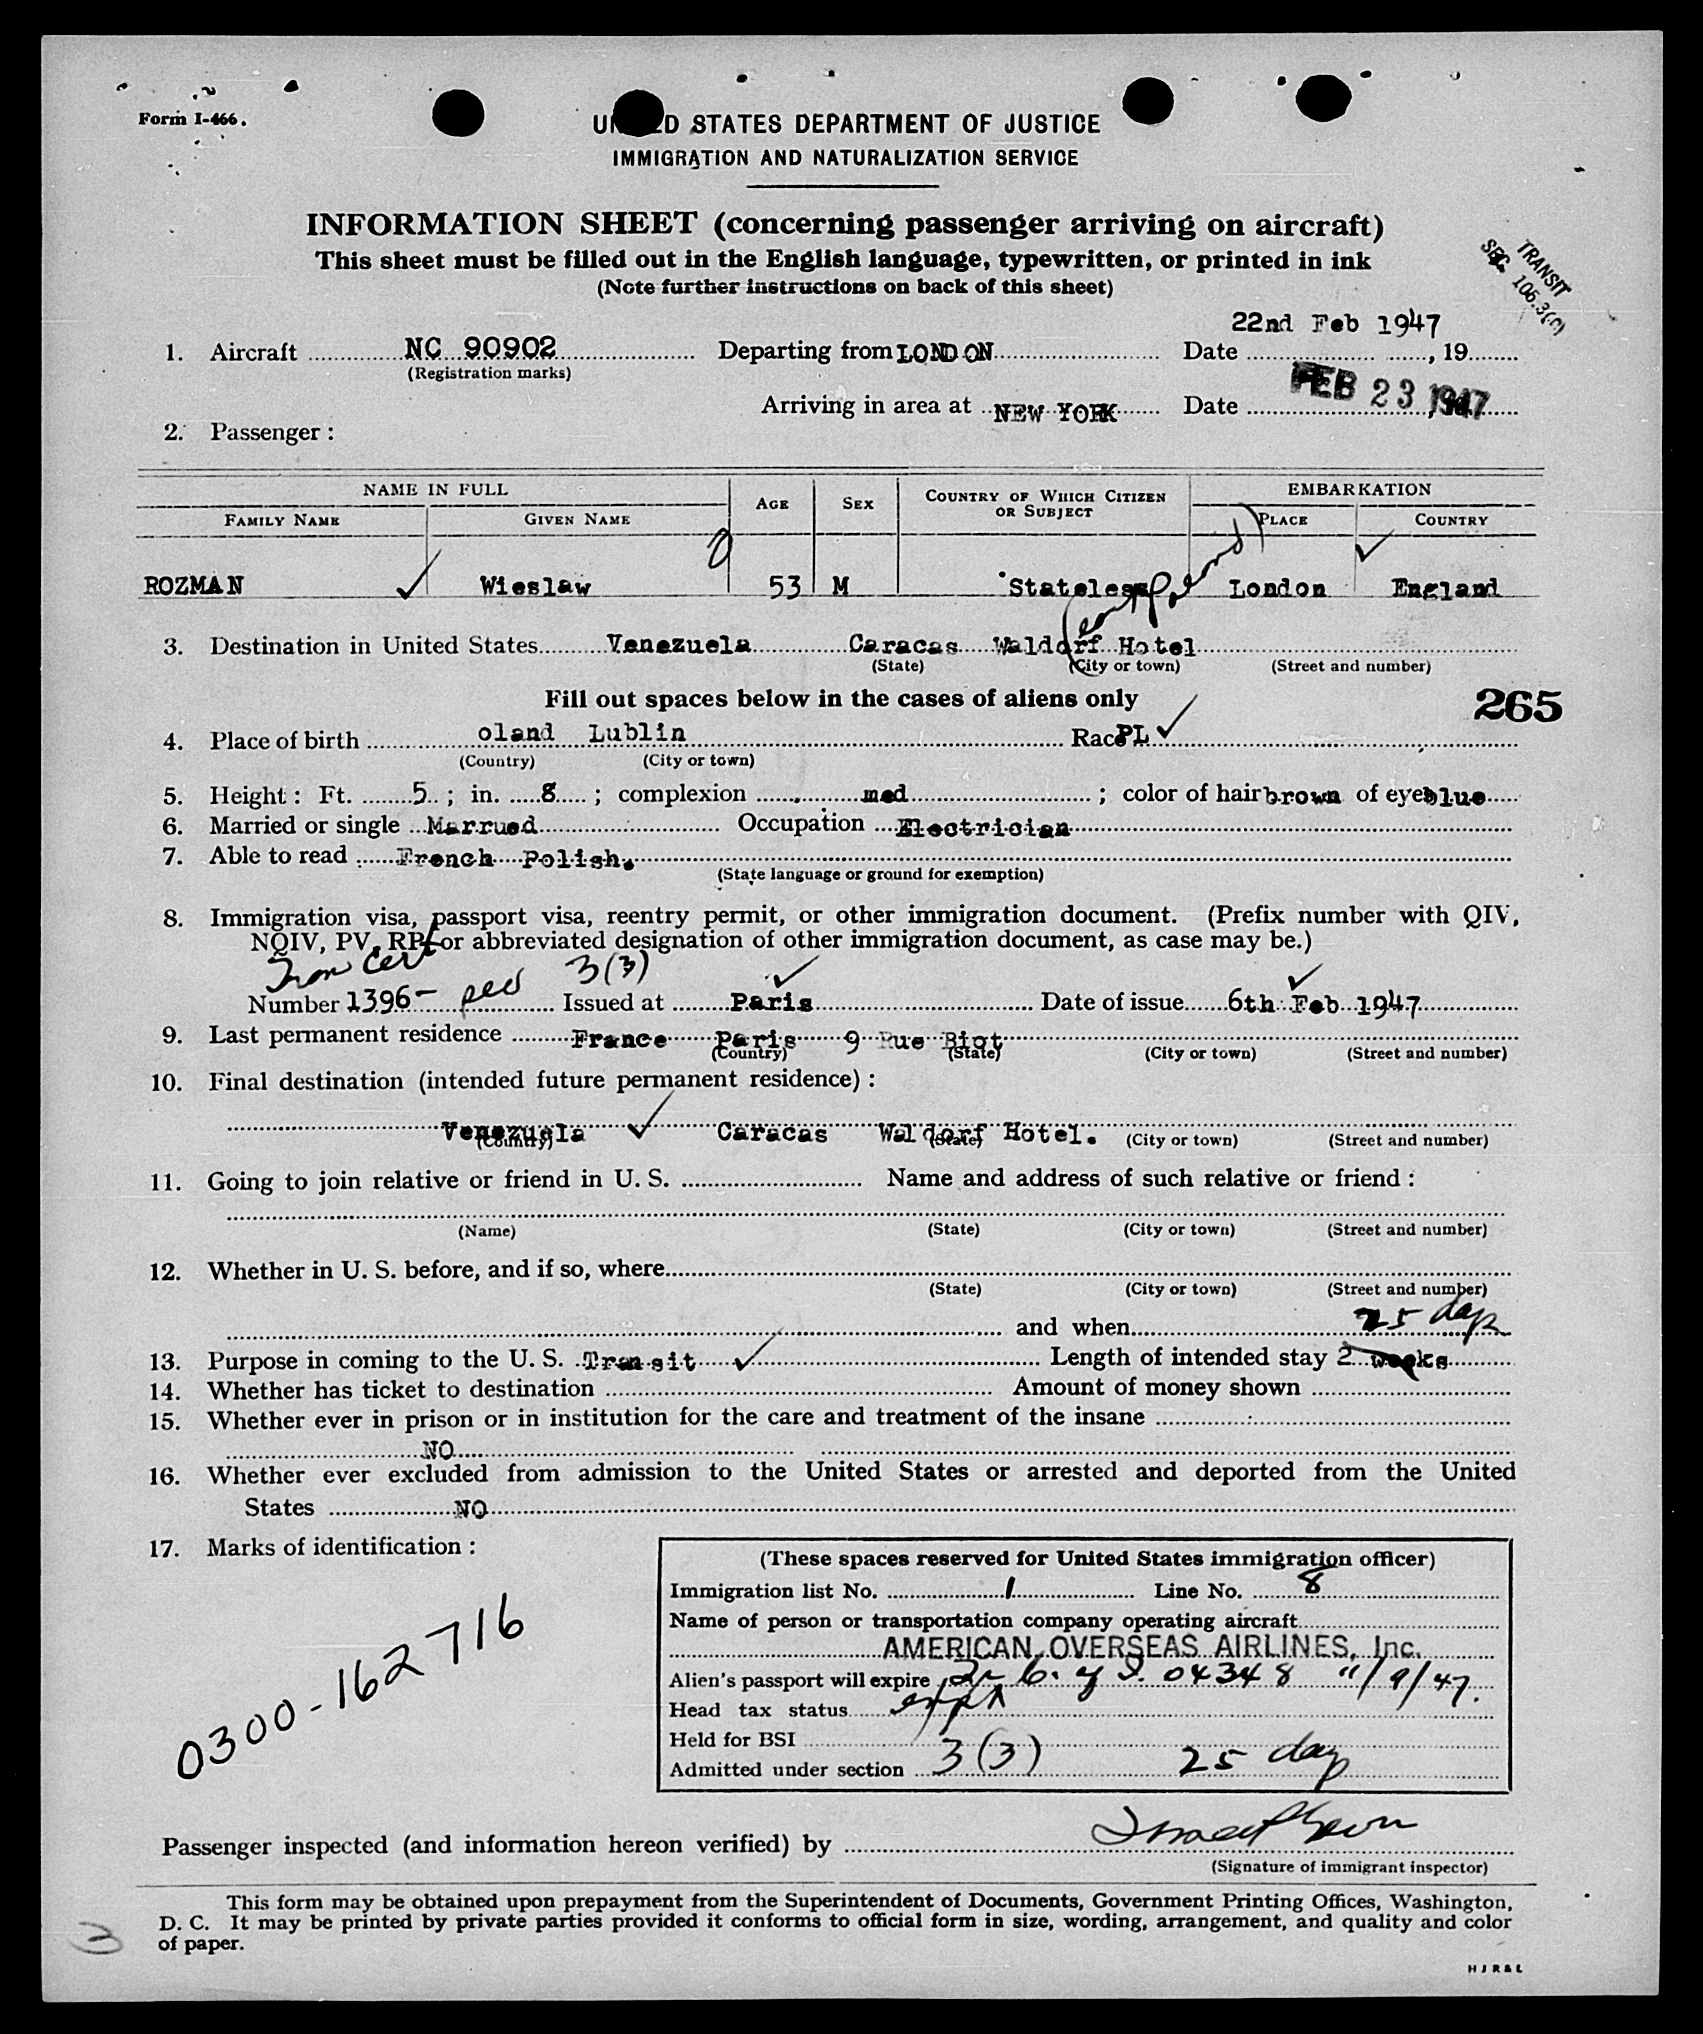 Form I-466.
UNITED STATES DEPARTMENT OF JUSTICE
IMMIGRATION AND NATURALIZATION SERVICE
INFORMATION SHEET (concerning passenger arriving on aircraft)
This sheet must be filled out in the English language, typewritten, or printed in ink
(Note further instructions on back of this sheet)
TRANSIT
SEC. 106.3
22nd Feb 1947
1. Aircraft NC 90902 Departing from LONDON Date , 19
(Registration marks)
Arriving in area at NEW YORK Date FEB 23 1947
2. Passenger :
NAME IN FULL AGE SEX COUNTRY OF WHICH CITIZEN OR SUBJECT EMBARKATION
FAMILY NAME GIVEN NAME PLACE COUNTRY
ROZMAN Wieslaw 53 M Stateless London England
3. Destination in United States Venezuela Caracas Waldorf Hotel
(State) (City or town) (Street and number)
Fill out spaces below in the cases of aliens only
265
4. Place of birth oland Lublin Race PL
(Country) (City or town)
5. Height : Ft. 5 ; in. 8 ; complexion med ; color of hair brown of eyes blue
6. Married or single Marrued Occupation Electrician
7. Able to read French Polish.
(State language or ground for exemption)
8. Immigration visa, passport visa, reentry permit, or other immigration document. (Prefix number with QIV,
NQIV, PV, RP, or abbreviated designation of other immigration document, as case may be.)
Tran Cert 3(3)
Number 1396- Issued at Paris Date of issue 6th Feb 1947
9. Last permanent residence France Paris 9 Rue Biot
(Country) (State) (City or town) (Street and number)
10. Final destination (intended future permanent residence) :
Venezuela Caracas Waldorf Hotel.
(Country) (State) (City or town) (Street and number)
11. Going to join relative or friend in U. S. Name and address of such relative or friend :
(Name) (State) (City or town) (Street and number)
12. Whether in U. S. before, and if so, where
(State) (City or town) (Street and number)
and when 25 days
13. Purpose in coming to the U. S. Transit Length of intended stay 2 weeks
14. Whether has ticket to destination Amount of money shown
15. Whether ever in prison or in institution for the care and treatment of the insane
NO
16. Whether ever excluded from admission to the United States or arrested and deported from the United
States NO
17. Marks of identification :
0300-162716
(These spaces reserved for United States immigration officer)
Immigration list No. 1 Line No. 8
Name of person or transportation company operating aircraft
AMERICAN OVERSEAS AIRLINES, Inc.
Alien's passport will expire 04348 11/9/47.
Head tax status
Held for BSI
Admitted under section 3(3) 25 days
Passenger inspected (and information hereon verified) by
(Signature of immigrant inspector)
This form may be obtained upon prepayment from the Superintendent of Documents, Government Printing Offices, Washington,
D. C. It may be printed by private parties provided it conforms to official form in size, wording, arrangement, and quality and color
of paper.
3
H J R & L